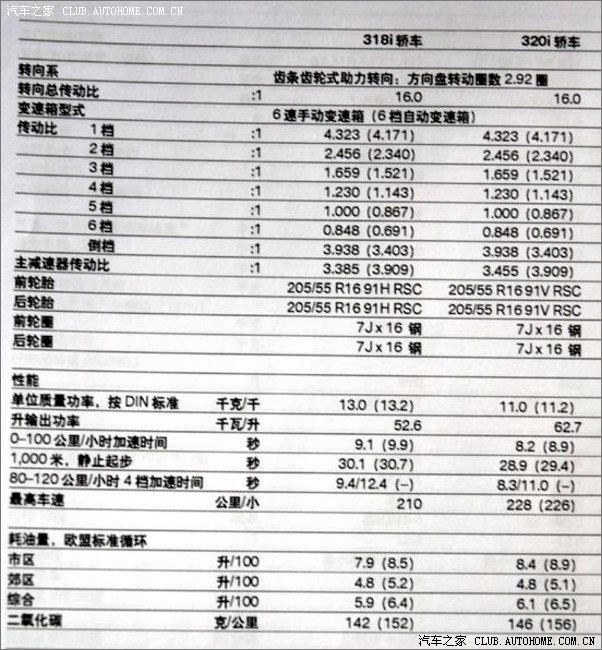 汽车之家 CLUB.AUTOHOME.COM.CN
318i 轿车 320i 轿车
转向系 齿条齿轮式助力转向；方向盘转动圈数 2.92 圈
转向总传动比 :1 16.0 16.0
变速箱型式 6 速手动变速箱（6 档自动变速箱）
传动比 1 档 :1 4.323 (4.171) 4.323 (4.171)
2 档 :1 2.456 (2.340) 2.456 (2.340)
3 档 :1 1.659 (1.521) 1.659 (1.521)
4 档 :1 1.230 (1.143) 1.230 (1.143)
5 档 :1 1.000 (0.867) 1.000 (0.867)
6 档 :1 0.848 (0.691) 0.848 (0.691)
倒档 :1 3.938 (3.403) 3.938 (3.403)
主减速器传动比 :1 3.385 (3.909) 3.455 (3.909)
前轮胎 205/55 R16 91H RSC 205/55 R16 91V RSC
后轮胎 205/55 R16 91H RSC 205/55 R16 91V RSC
前轮圈 7J x 16 钢 7J x 16 钢
后轮圈 7J x 16 钢 7J x 16 钢
性能
单位质量功率，按 DIN 标准 千克/千 13.0 (13.2) 11.0 (11.2)
升输出功率 千瓦/升 52.6 62.7
0–100 公里/小时加速时间 秒 9.1 (9.9) 8.2 (8.9)
1,000 米，静止起步 秒 30.1 (30.7) 28.9 (29.4)
80–120 公里/小时 4 档加速时间 秒 9.4/12.4 (–) 8.3/11.0 (–)
最高车速 公里/小 210 228 (226)
耗油量，欧盟标准循环
市区 升/100 7.9 (8.5) 8.4 (8.9)
郊区 升/100 4.8 (5.2) 4.8 (5.1)
综合 升/100 5.9 (6.4) 6.1 (6.5)
二氧化碳 克/公里 142 (152) 146 (156)
汽车之家 CLUB.AUTOHOME.COM.CN